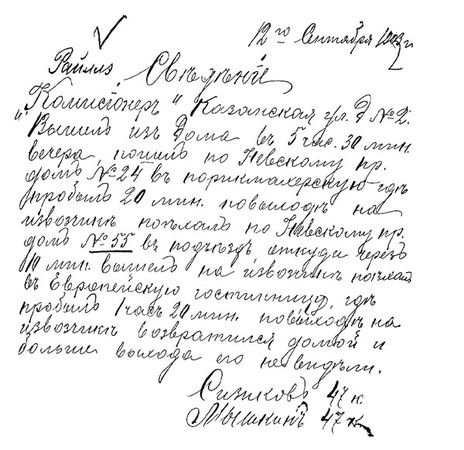 12го Сентября 1903 г
Райллэ Свѣдѣнiе
„Комисiонеръ“ Казанская ул. Д №2.
Вышелъ изъ Дома въ 5 час. 30 мин.
вечера, пошелъ по Невскому пр.
домъ №24 въ парикмахерскую гдѣ
пробылъ 20 мин. повыходѣ на
извозчикѣ поѣхалъ по Невскому пр.
домъ №55 въ подъѣздъ откуда черезъ
10 мин. вышелъ на извозчикѣ поѣхалъ
въ Европейскую гостинницу, гдѣ
пробылъ 1 часъ 20 мин. повыходѣ на
извозчикѣ возвратился домой и
больше выхода его не видѣли.
Сижковъ 47 к.
Мышкинъ 47 к.